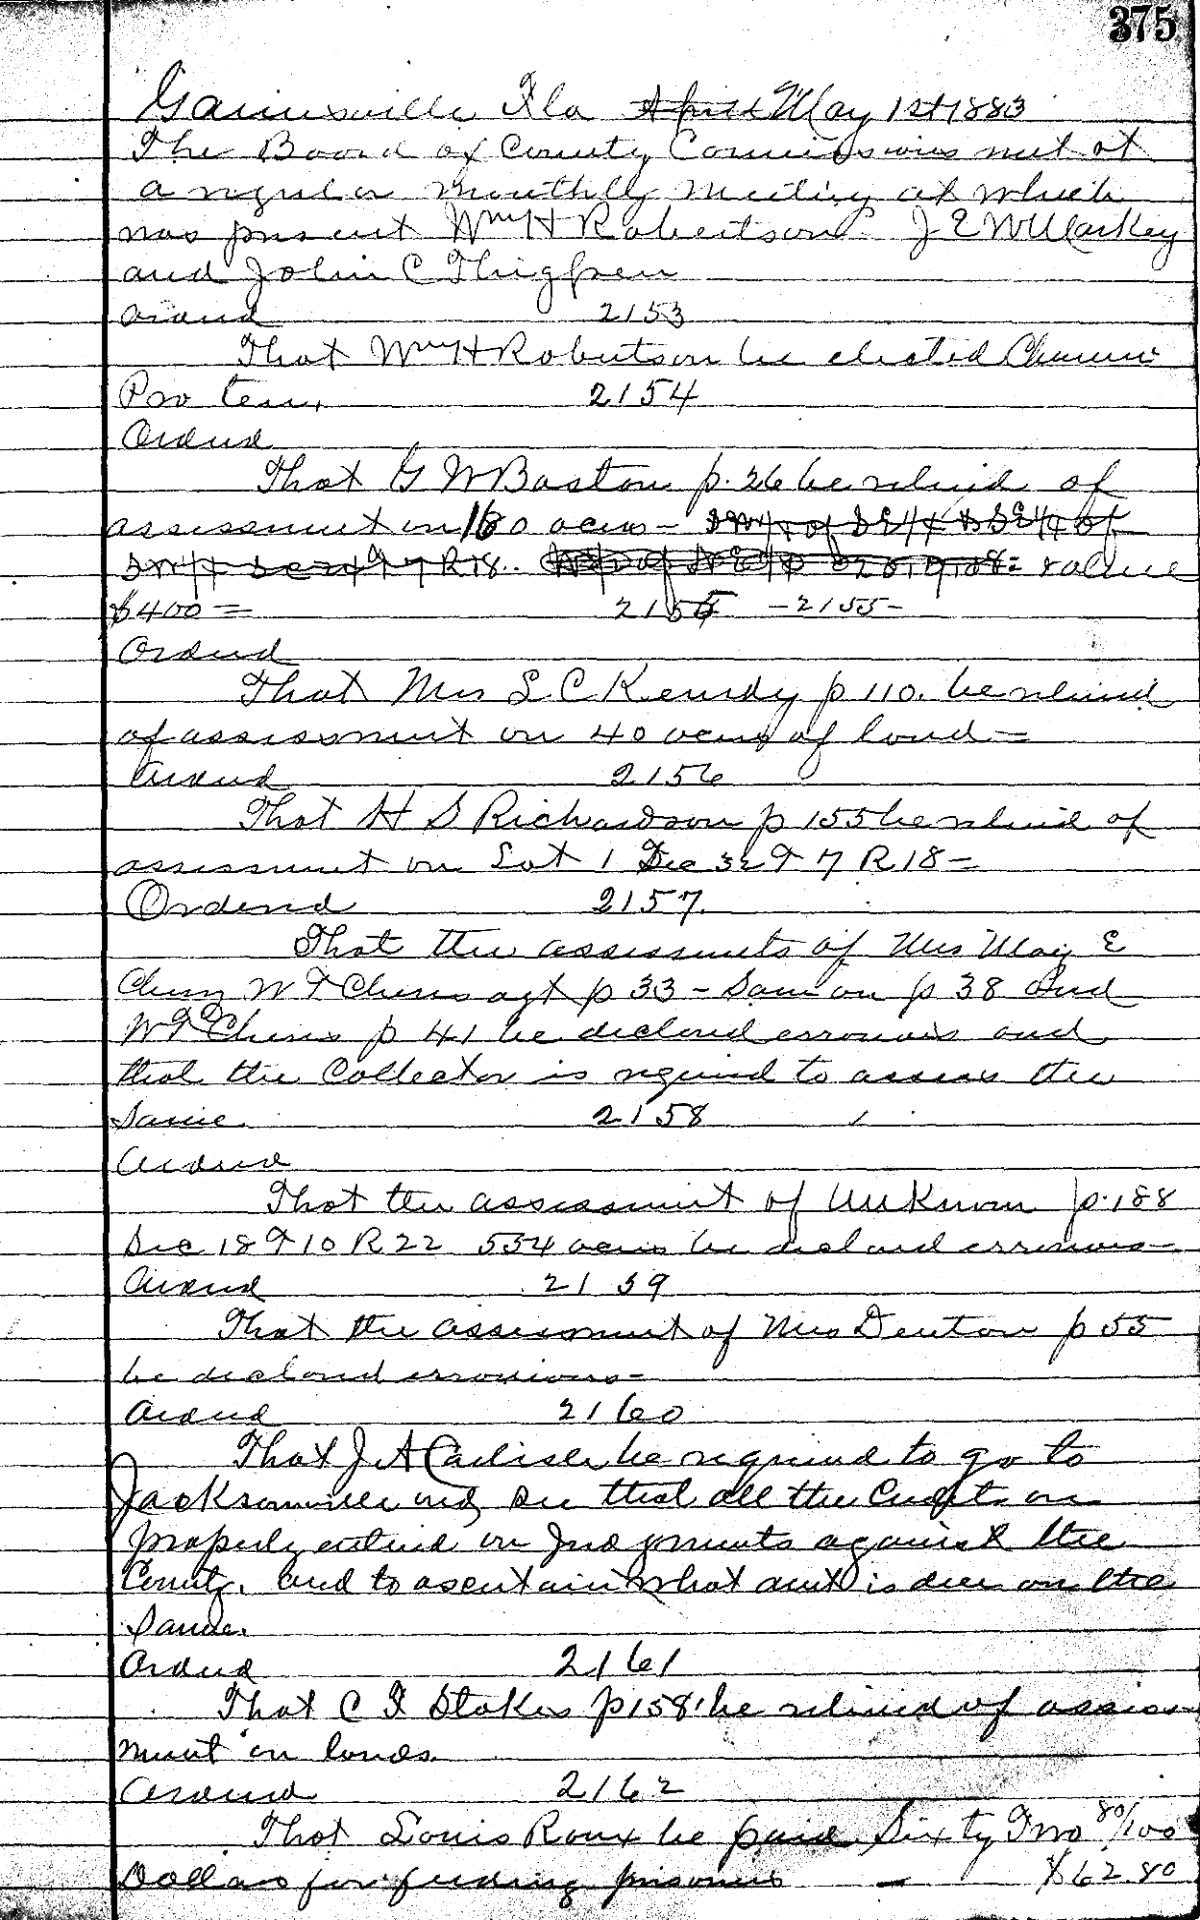 375
Gainesville Fla April May 1st 1883
The Board of County Commissioners met at
a regular monthly meeting at which
was present Wm H Robertson J E W McCaskey
and John C Thigpen
Ordered 2153
That Wm H Robertson be elected Chairman
Pro tem. 2154
Ordered
That G W Baston p. 26 be relieved of
assessment on 160 acres - SW¼ of SE¼ & SE¼ of
SW¼ Sec T 7 R 18 value
$400 = 2155 - 2155 -
Ordered
That Mrs S C Kennedy p 110. be relieved
of assessment on 40 acres of land =
Ordered 2156
That H S Richardson p 155 be relieved of
assessment on Lot 1 Sec 32 T 7 R 18 =
Ordered 2157.
That the assessments of Mrs May E
W T agt p 33 - Same on p 38 and
W T p 41 be declared erroneous and
that the Collector is required to assess the
Same. 2158
Ordered
That the assessment of Unknown p. 188
Sec 18 T 10 R 22 554 acres be declared erroneous -
Ordered 2159
That the assessment of Mrs Denton p 55
be declared erroneous =
Ordered 2160
That J A Carlisle be required to go to
Jacksonville and see that all the Credits are
properly entered on Judgments against the
County. and to ascertain what amt is due on the
Same.
Ordered 2161
That C F Stokes p 158 be relieved of assess
ment on lands.
Ordered 2162
That Louis Roux be paid Sixty Two 80/100
Dollars for feeding prisoners - $62.80